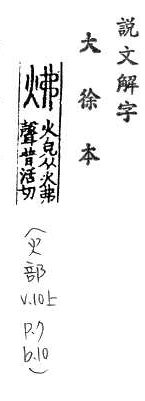 説文解字
大徐本
炥
火皃从火弗
聲普活切
(火部
v.10上
p.7
b.10)